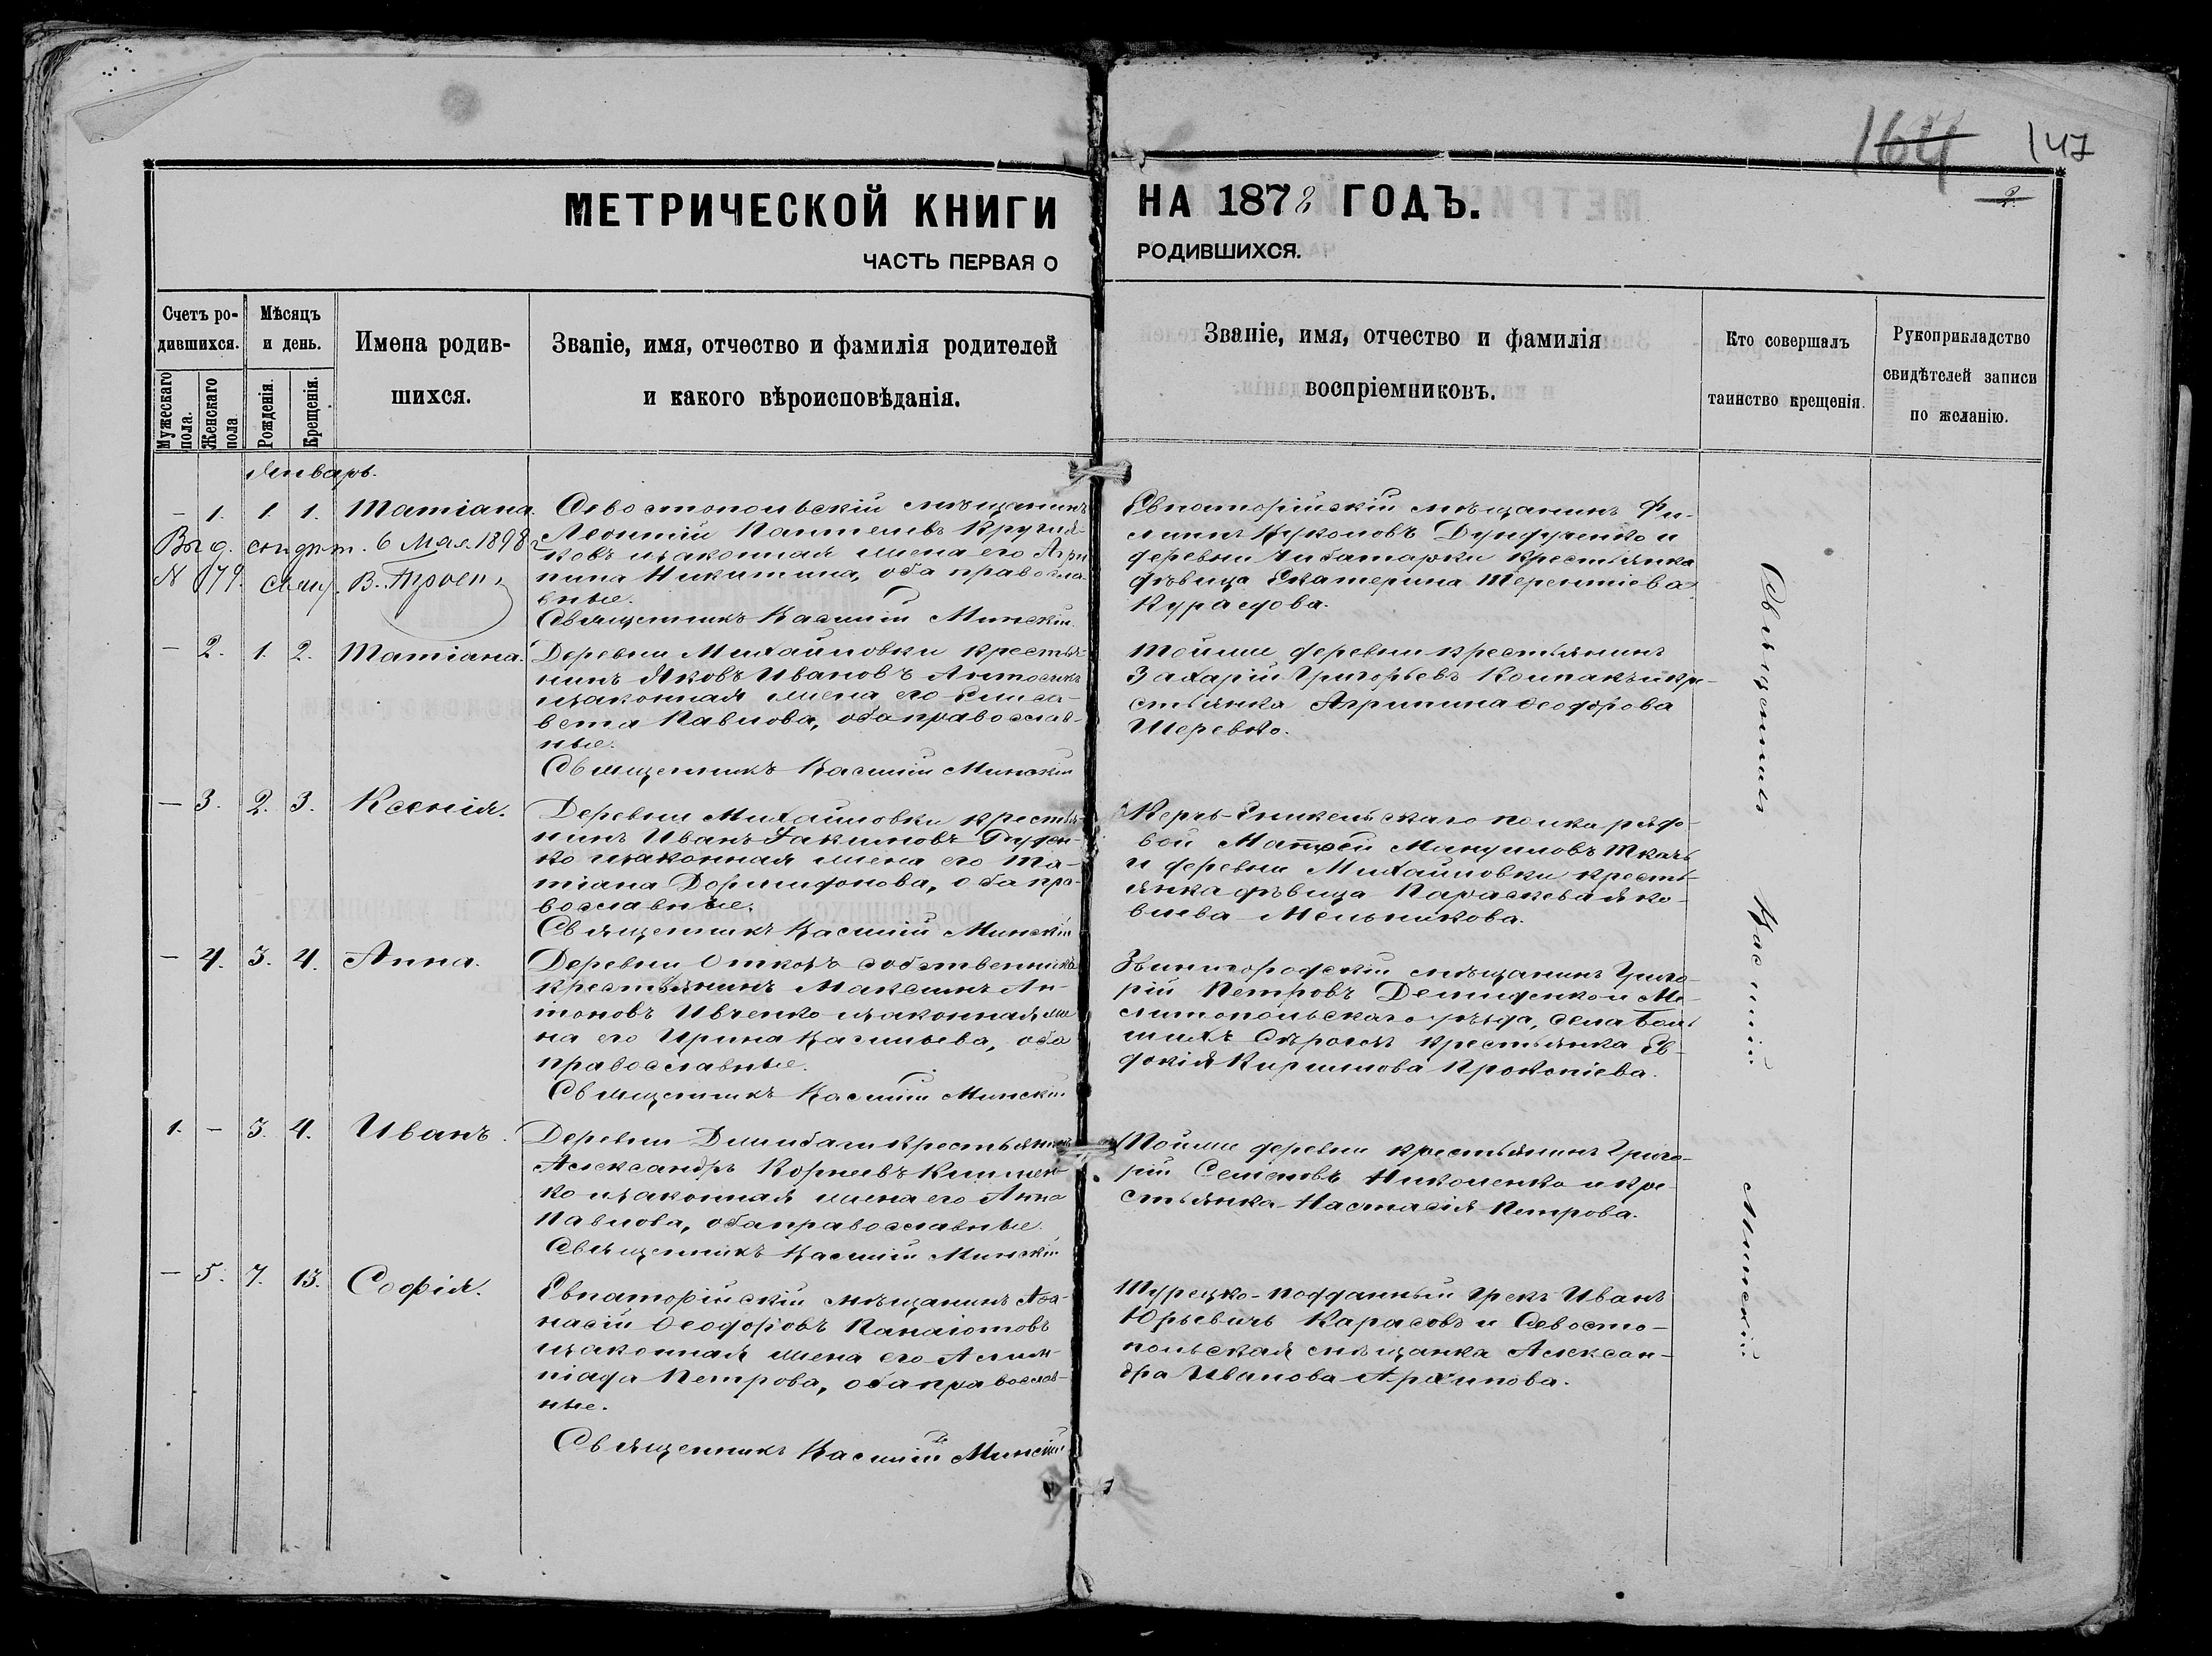 164 147
МЕТРИЧЕСКОЙ КНИГИ НА 1878 ГОДЪ.
2.
ЧАСТЬ ПЕРВАЯ О РОДИВШИХСЯ.
Счетъ ро-
дившихся.
Мужескаго
пола.
Женскаго
пола
Мѣсяцъ
и день.
Рожденія.
Крещенія.
Имена родив-
шихся.
Званіе, имя, отчество и фамилія родителей
и какого вѣроисповѣданія.
Званіе, имя, отчество и фамилія
воспріемниковъ.
Кто совершалъ
таинство крещенія.
Рукоприкладство
свидѣтелей записи
по желанію.
Январь.
– 1. 1. 1. Татіана.
Севостопольскій мѣщанинъ
Леонтій Пантелѣевъ Кругля-
ковъ и законная жена его Агри
пина Никитина, оба правосла-
вные.
Священникъ Василій Минскій.
Евпаторійскій мѣщанинъ Фи-
липпъ
деревни Чибатарки крестьянка
дѣвица Екатерина Терентіева
Курасдова.
Выд. 6 Мая 1898 г.
№ 179.
– 2. 1. 2. Татіана.
Деревни Михайловки крестья-
нинъ Яковъ Ивановъ
и законная жена его Елиза-
вета Павлова, оба православ-
ные.
Священникъ Василій Минскій
Тойже деревни крестьянинъ
Захарій Григорьевъ Колпакъ и кре-
стьянка Агрипина Ѳеодорова
Шеревко.
– 3. 2. 3. Ксенія.
Деревни Михайловки крестья-
нинъ Иванъ Іакимовъ Гуден-
ко и законная жена его Та-
тіана Доримидонова, оба пра-
вославные.
Священникъ Василій Минскій
Керчь-Еникельскаго полка рядо-
вой Матѳей Мануиловъ Ткачь
и деревни Михайловки кресть-
янка дѣвица Параскева Яко-
влева Мельникова.
– 4. 3. 4. Анна.
Деревни Откозъ собственникъ
крестьянинъ Максимъ Ан-
тоновъ Ивченко и законная же
на его Ирина Васильева, оба
православные.
Священникъ Василій Минскій
Звинигородскій мѣщанинъ Григо-
рій Петровъ Демиденко и Ме-
литопольскаго уѣзда, села Боль
шихъ Сѣрогозъ крестьянка Ев-
докія Кирилова Прокопіева.
1. – 3. 4. Иванъ.
Деревни крестьянинъ
Александръ Корнеевъ Климен-
ко и законная жена его Анна
Павлова, оба православные.
Священникъ Василій Минскій
Тойже деревни крестьянинъ Григо-
рій Семеновъ Николенко и кре
стьянка Настасія Петрова.
– 5. 7. 13. Софія.
Евпаторійскій мѣщанинъ Аѳа-
насій Ѳеодоровъ Панаіотовъ
и законная жена его Олим-
піада Петрова, оба православ-
ные.
Священникъ Василій Минскій
Турецко-подданный грекъ Иванъ
Юрьевичъ Карасовъ и Севосто-
польская мѣщанка Алексан-
дра Иванова Архипова.
Священникъ Василій Минскій